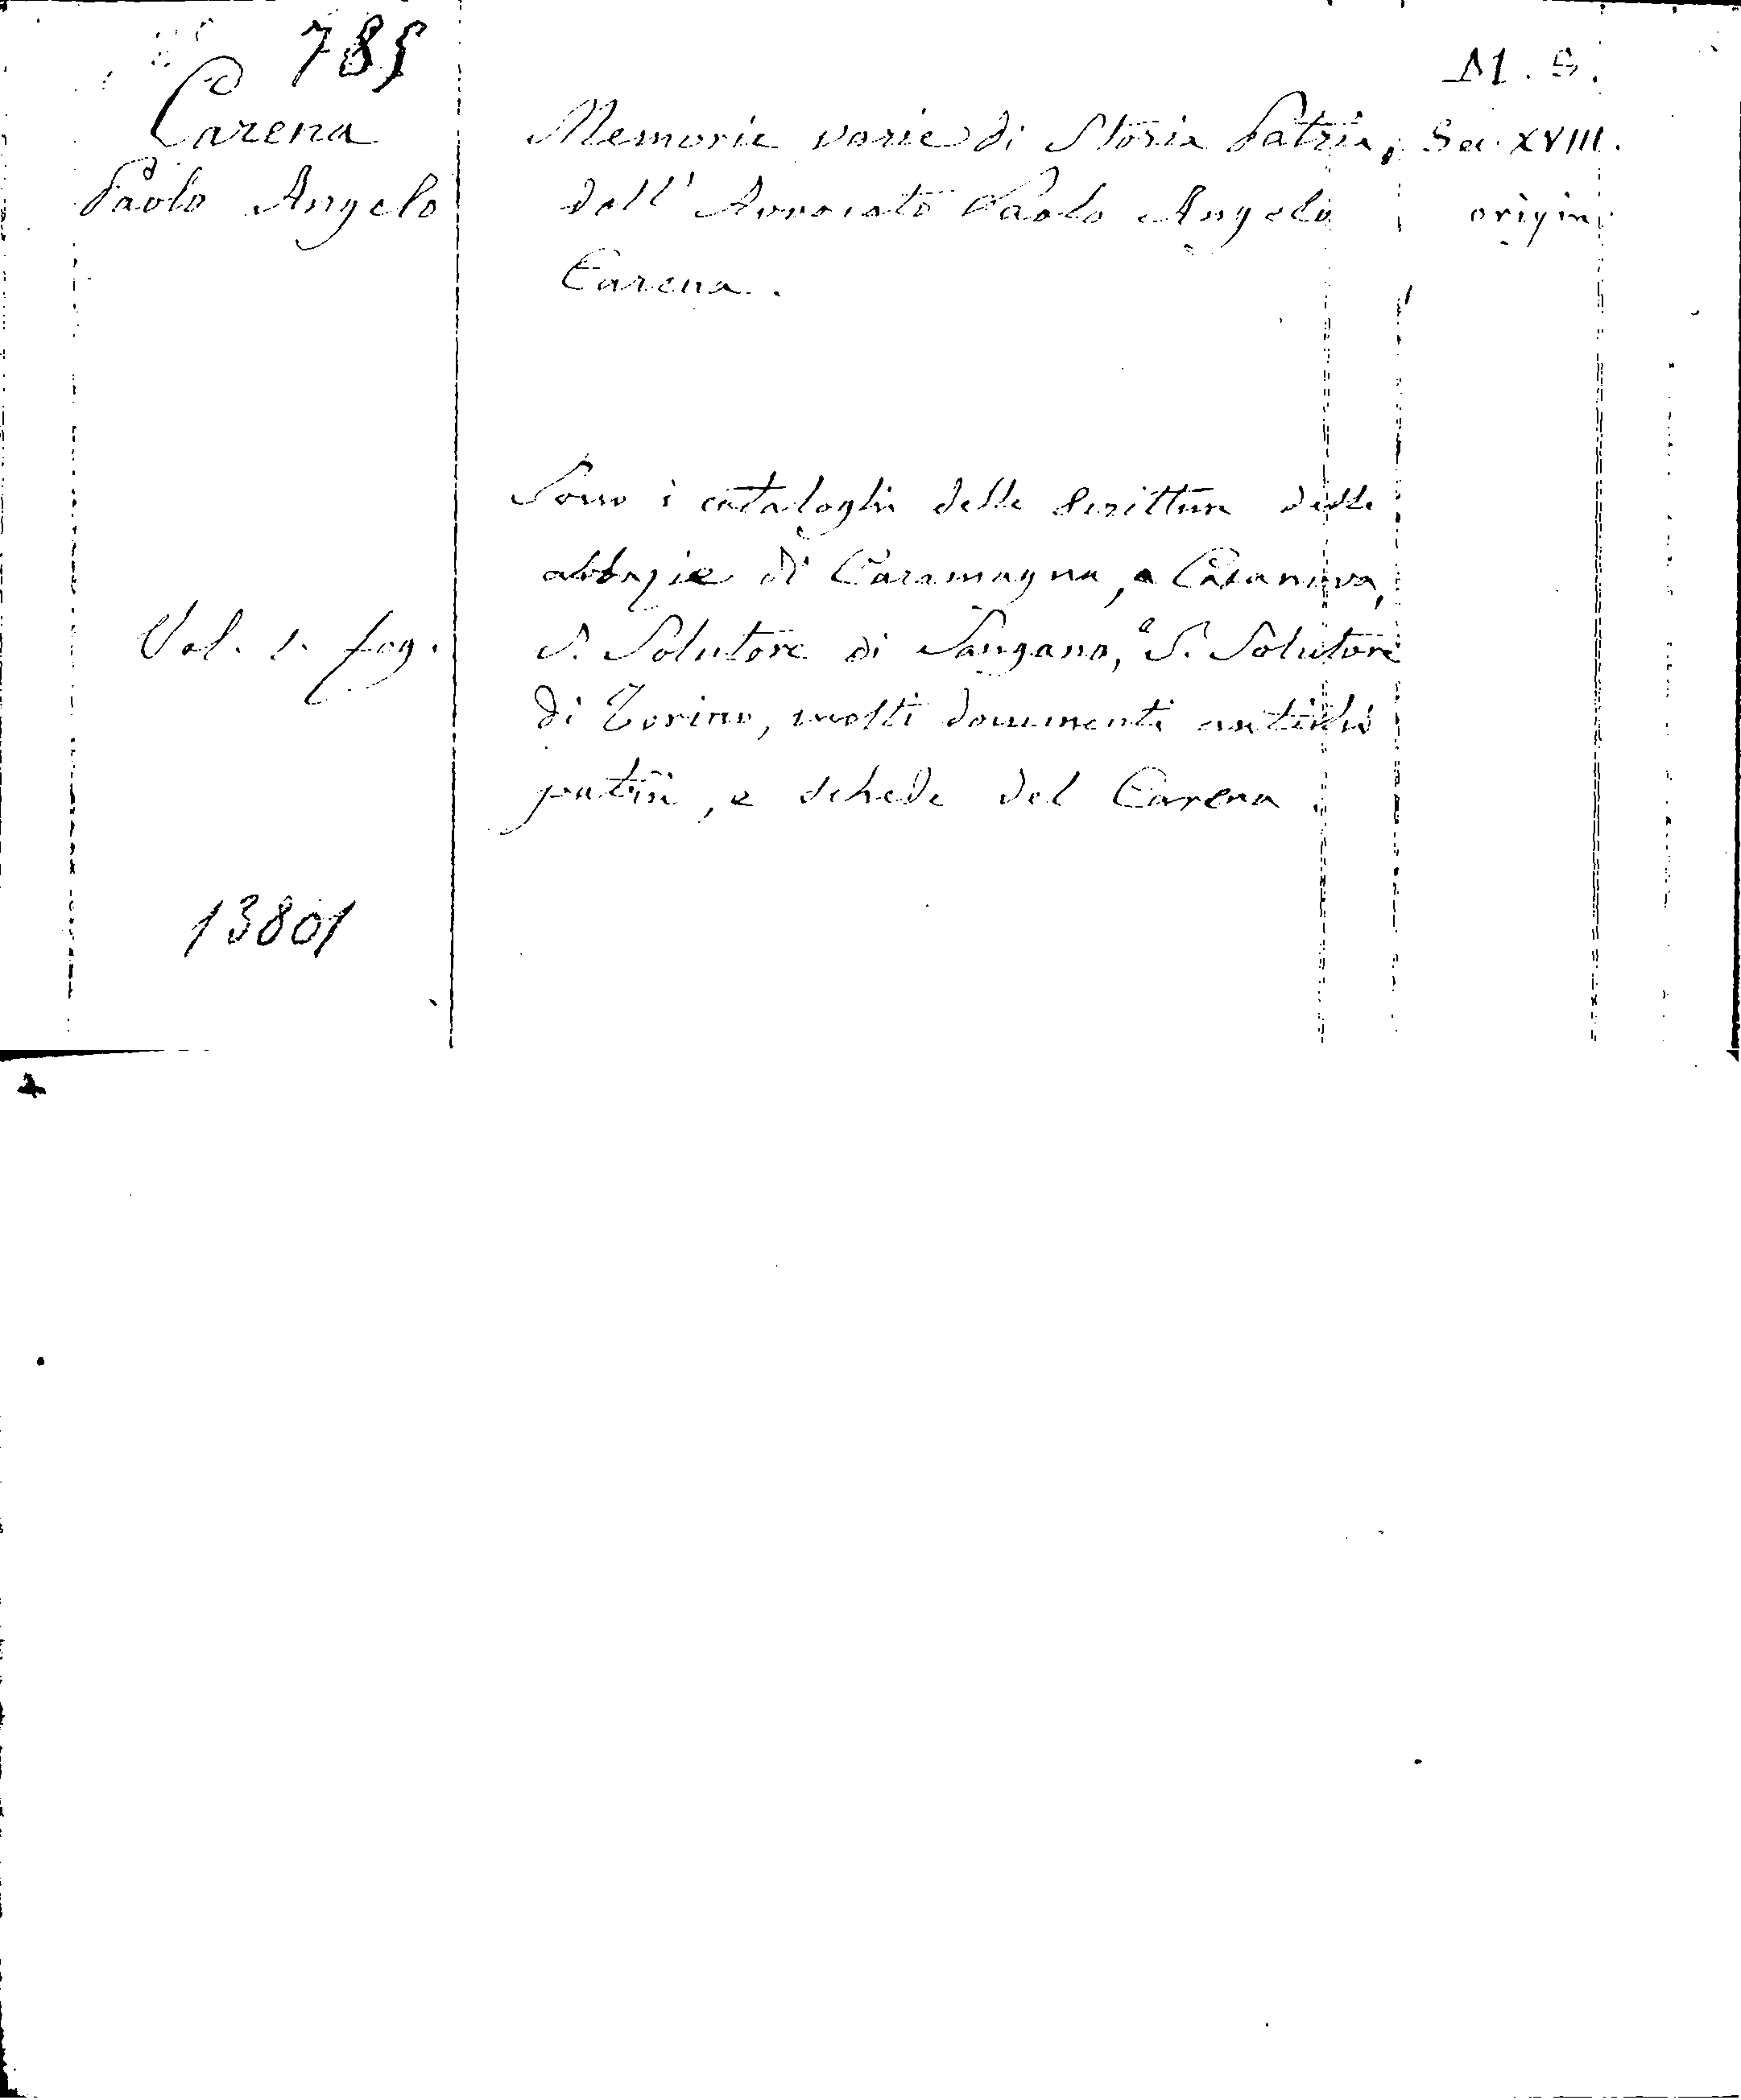 785
Carena
Paolo Angelo
Vol. 1. fog.
13801
Memorie varie di Storia Patria,
dell' Avvocato Paolo Angelo
Carena.
Sono i cataloghi delle scritture delle
abbazie di Caramagna, e Casanova,
S. Solutore di Sangano, e S. Solutore
di Torino, molti documenti antichi
patrii, e schede del Carena.
M. S.
Sec. XVIII.
origin.